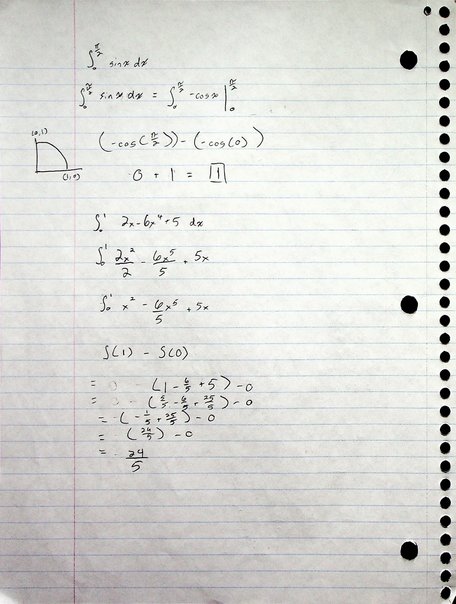 ∫₀^(π/2) sinx dx
∫₀^(π/2) sinx dx = ∫₀^(π/2) -cosx |₀^(π/2)
(0,1)
(1,0)
(-cos(π/2)) - (-cos(0))
0 + 1 = 1
∫₀¹ 2x - 6x⁴ + 5 dx
∫₀¹ 2x²/2 - 6x⁵/5 + 5x
∫₀¹ x² - 6x⁵/5 + 5x
S(1) - S(0)
= (1 - 6/5 + 5) - 0
= (5/5 - 6/5 + 25/5) - 0
= (-1/5 + 25/5) - 0
= (24/5) - 0
= 24/5